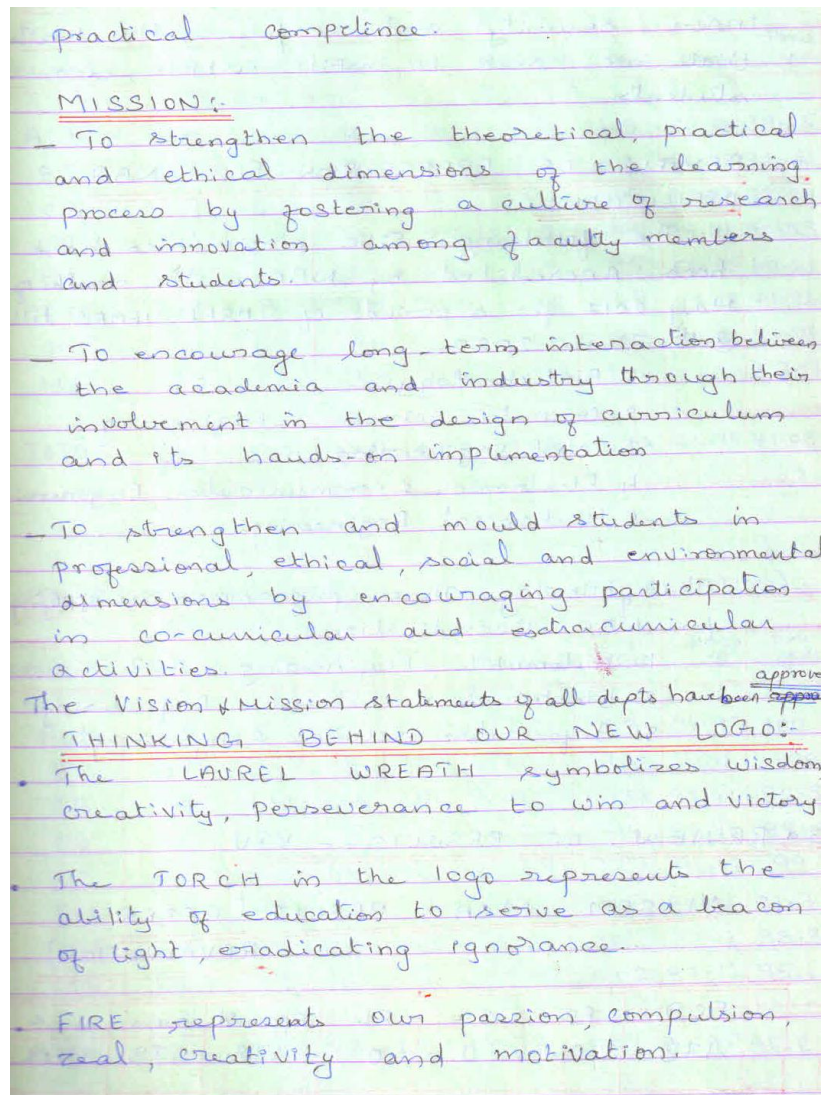 practical competence.
MISSION:-
- To strengthen the theoretical, practical
and ethical dimensions of the learning
process by fostering a culture of research
and innovation among faculty members
and students.
- To encourage long-term interaction between
the academia and industry through their
involvement in the design of curriculum
and its hands-on implementation
- To strengthen and mould students in
professional, ethical, social and environmental
dimensions by encouraging participation
in co-curricular and extracurricular
activities.
approve
The Vision & Mission statements of all depts have been
THINKING BEHIND OUR NEW LOGO:-
• The LAUREL WREATH symbolizes wisdom
creativity, perseverance to win and victory
• The TORCH in the logo represents the
ability of education to serve as a beacon
of light, eradicating ignorance.
• FIRE represents our passion, compulsion,
zeal, creativity and motivation.